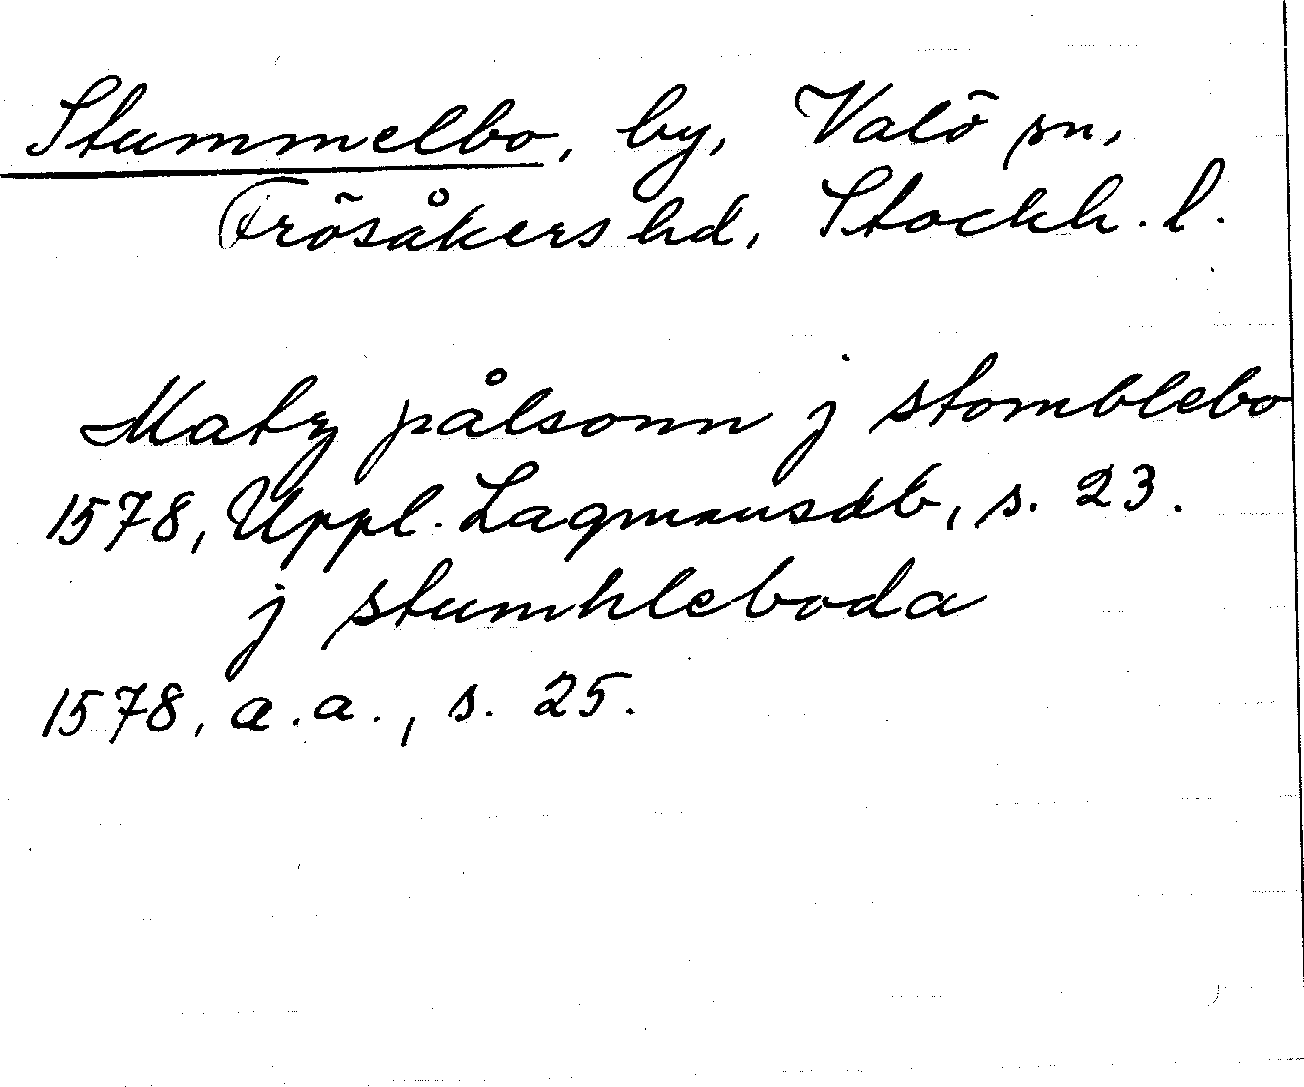 Stummelbo, by, Valö sn,
Frösåkers hd, Stockh. l.
Matz pålsonn j stomblebo
1578, Uppl. Lagmansdb, s. 23.
j stumhleboda
1578, a.a., s. 25.